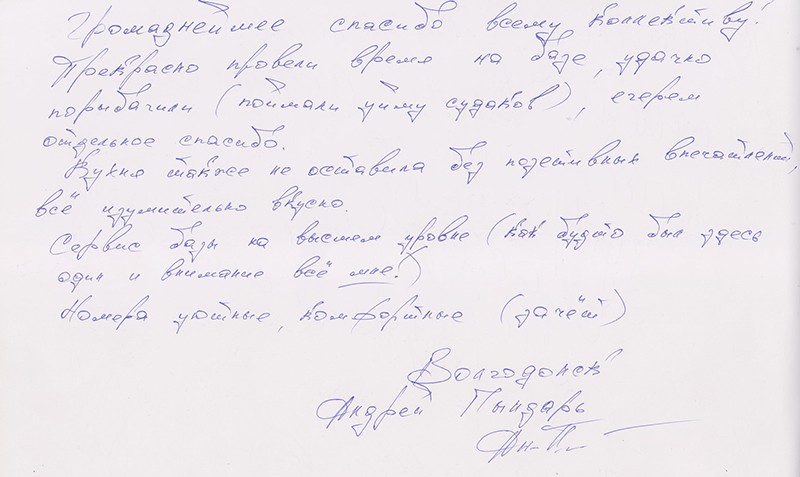 Громаднейшее спасибо всему коллективу!
Прекрасно провели время на базе, удачно
порыбачили (поймали уйму судаков), егерям
отдельное спасибо.
Кухня также не оставила без позетивных впечатлений,
всё изумительно вкусно.
Сервис базы на высшем уровне (как будто был здесь
один и внимание всё мне!)
Номера уютные, комфортные (зачёт)
Волгодонск
Андрей Пындарь